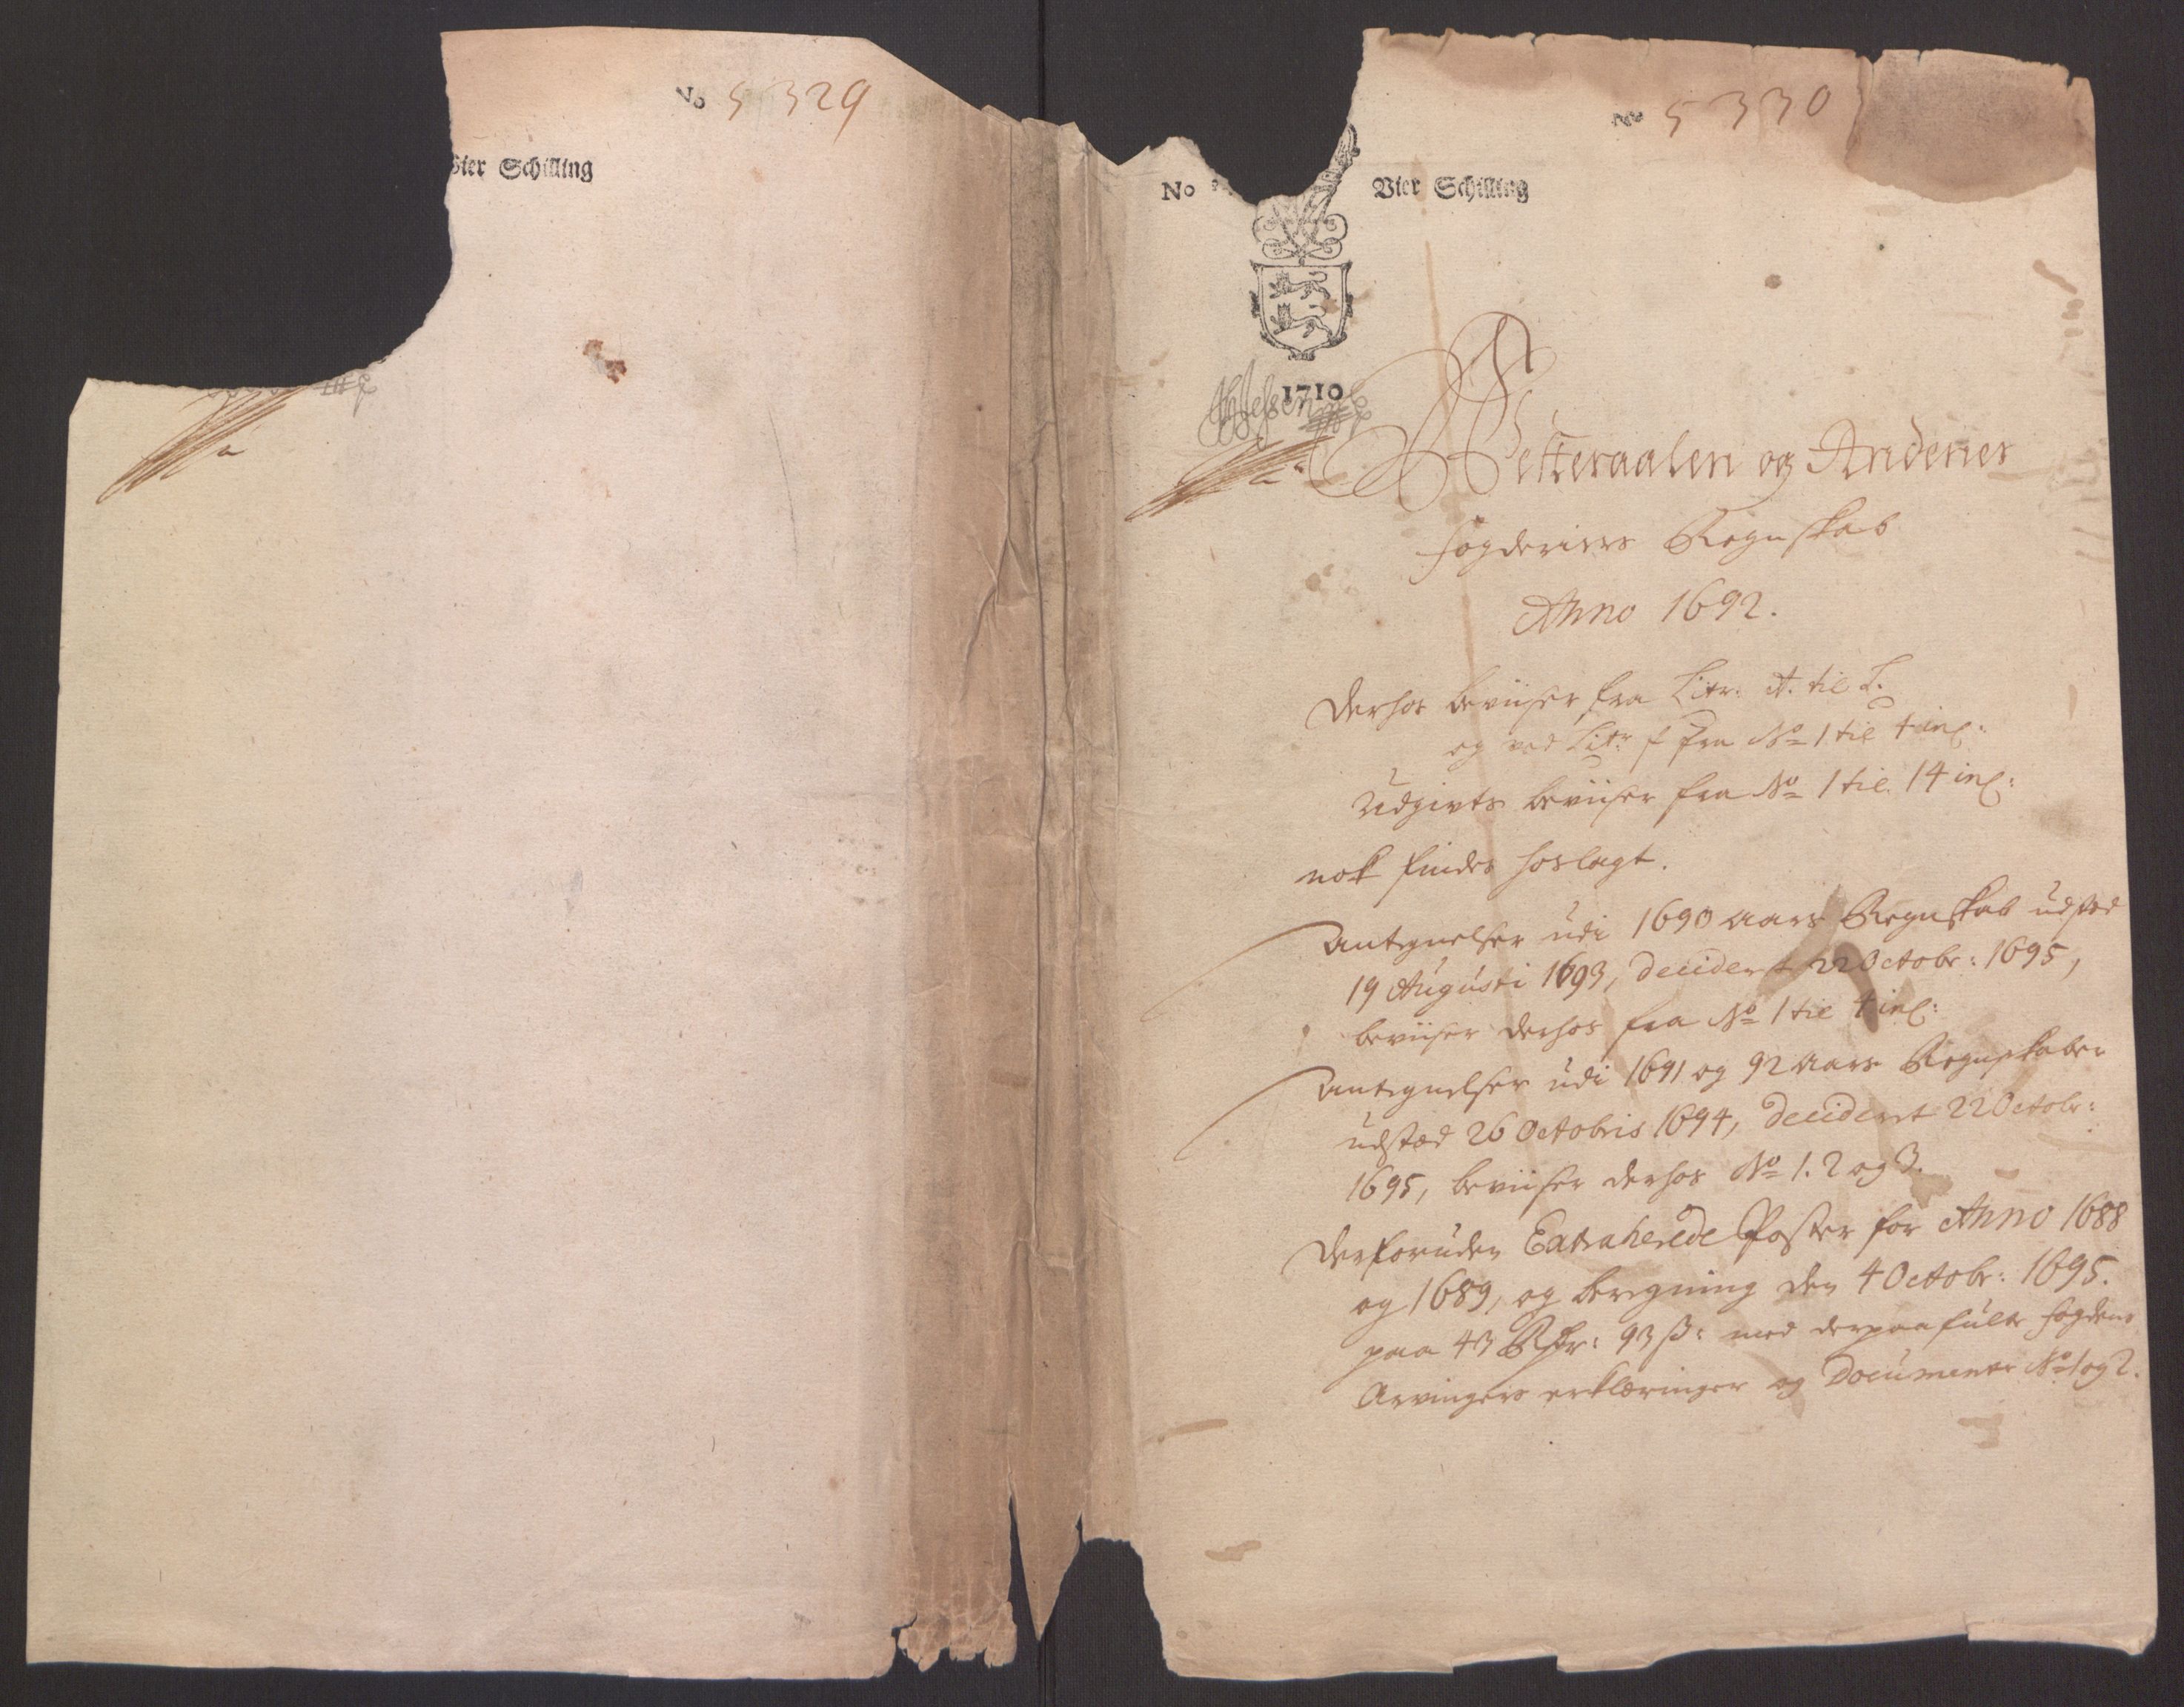 No 5329
Vier Schilling
No 5330
No
Vier Schilling
1710
Westeraalen og Andenes
fogderiers Regnskab
Anno 1692.
Derhos beviiser fra Litr: A. til L.
og ved Litr f fra No 1 til 4 incl:
Udgivts beviiser fra No 1 til 14 incl:
nok findes hoslagt.
Antegnelser udi 1690 aars Regnskab udsted
19 Augusti 1693, decideret 22 Octobr: 1695,
beviiser derhos fra No 1 til 4 incl:
Antegnelser udi 1691 og 92 aars Regnskaber
udstæd 26 Octobris 1694, decideret 22 Octobr:
1695, beviiser derhos No 1. 2 og 3.
Derforuden Extraherede Poster for Anno 1688
og 1689, og beregning den 4 Octobr: 1695.
paa 43 Rdr: 93 ß: med derpaafulte fogdens
Arvingers erklæringer og Documenter No 1 og 2.